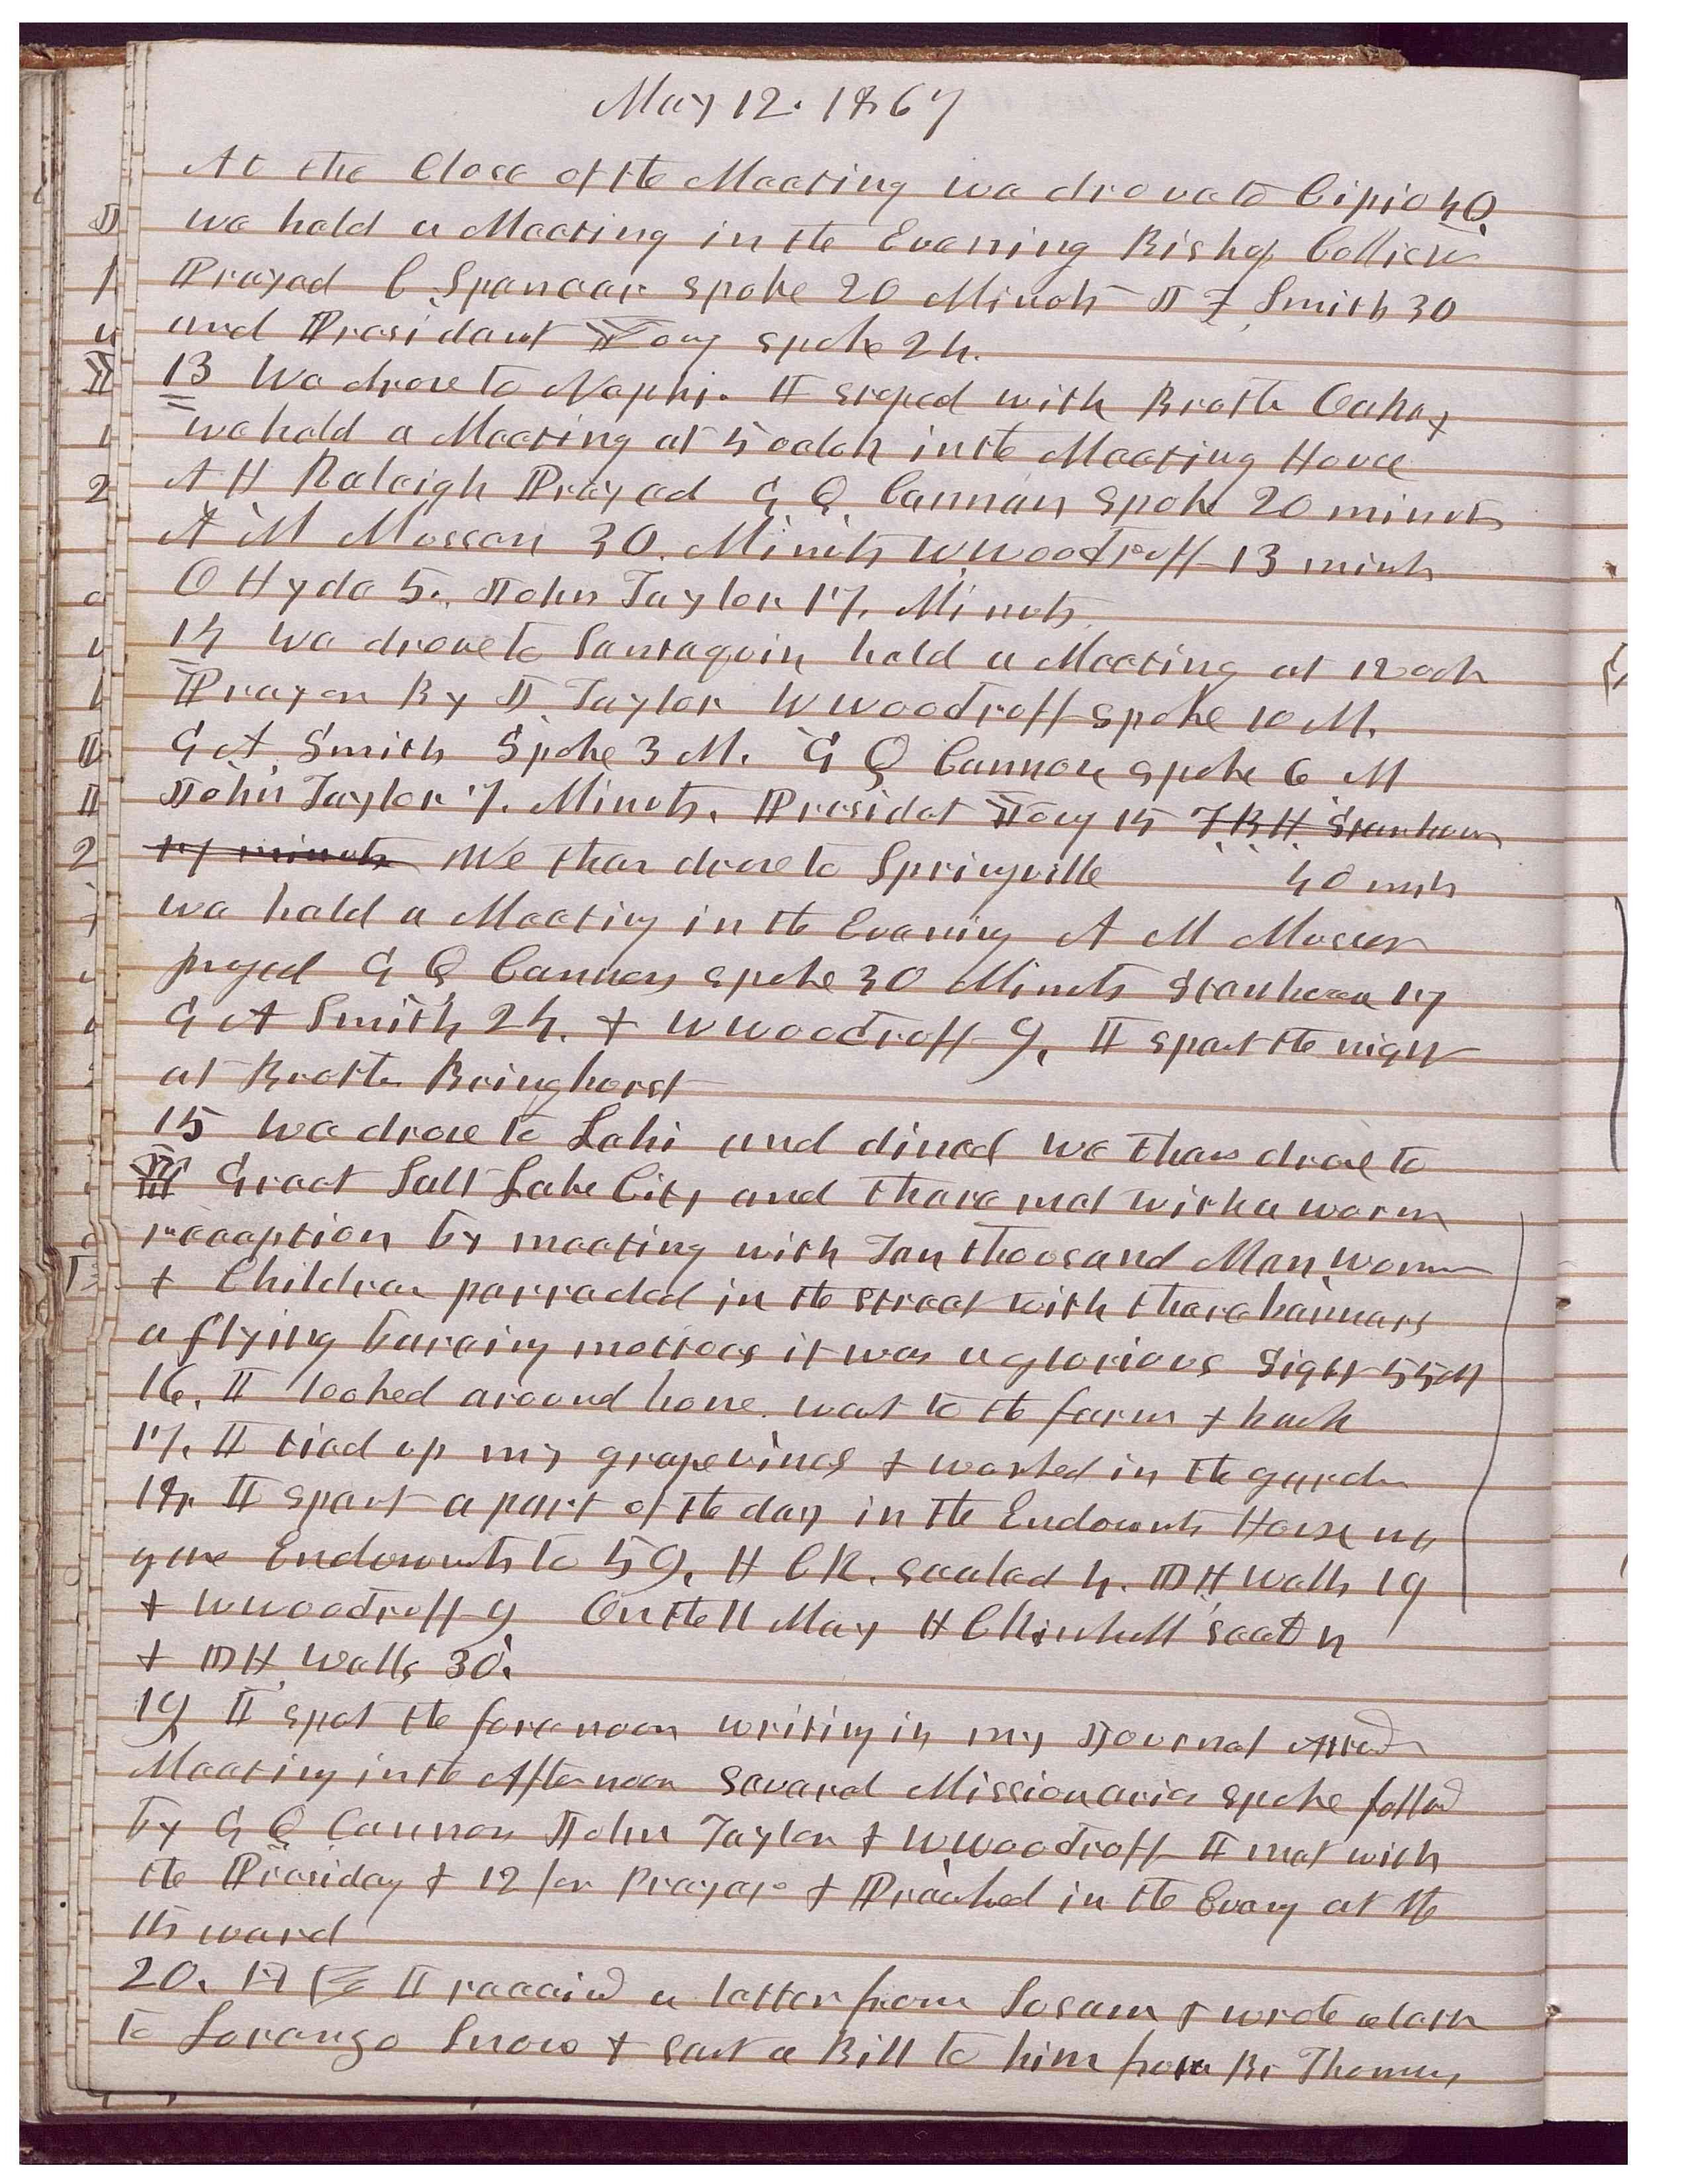 May 12. 1867
At the Close of the Meeting we drove to Cipio 40.
we held a Meeting in the Evening Bishop Collister
Prayed C Spencer spoke 20 Minuts J F Smith 30
and President Young spoke 24.
13 We drove to Nephi. I stoped with Brother Oakey
we held a Meeting at 5 oclok in the Meeting House
A H Raleigh Prayed G. Q. Cannan spoke 20 minuts
A M Musser 30. Minuts W. Woodruff 13 minuts
O Hyde 5. John Taylor 17. Minuts.
14 we drove to Santaquin held a Meeting at 12 ock
Prayer By J Taylor W Woodruff spoke 10 M.
G A. Smith Spoke 3 M. G Q Cannon spoke 6 M
John Taylor 7. Minuts. Presidet Young 15 T. B. H. Stenhouse
17 minuts We then drove to Springville 40 mils
we held a Meeting in the Evening A M Musser
prayed G Q Cannon spoke 30 Minuts Stenhouse 17
G A Smith 24. + W Woodruff 9. I spent the night
at Brother Bringhurst
15 we drove to Lehi and dined we then drove to
Great Salt Lake City and there met with a warm
reception by meeting with Ten thousand Men, Women
+ Children parraded in the street with there banners
a flying bareing mottoes it was a glorious Sight 55 M
16. I looked around home. went to the farm + back
17. I tied up my grapevines + worked in the garden
18. I spent a part of the day in the Endowmts House we
gave Endowmts to 59. H C K. sealed 4. D H Wells 19
+ W Woodruff 9 On the 11 May H C Kimball seald 4
+ D H Wells 30.
19 I spet the forenoon writing in my Journal Atted
Meeting in the Afternoon Severel Missionaries spoke follod
by G Q Cannon John Taylor + W. Woodruff I met with
the Presidey + 12 for Prayer + Preached in the Eveng at the
15 ward
20. I receivd a letter from Susan + wrote a lettr
to Lorenzo Snow + sent a Bill to him from Br Thomas